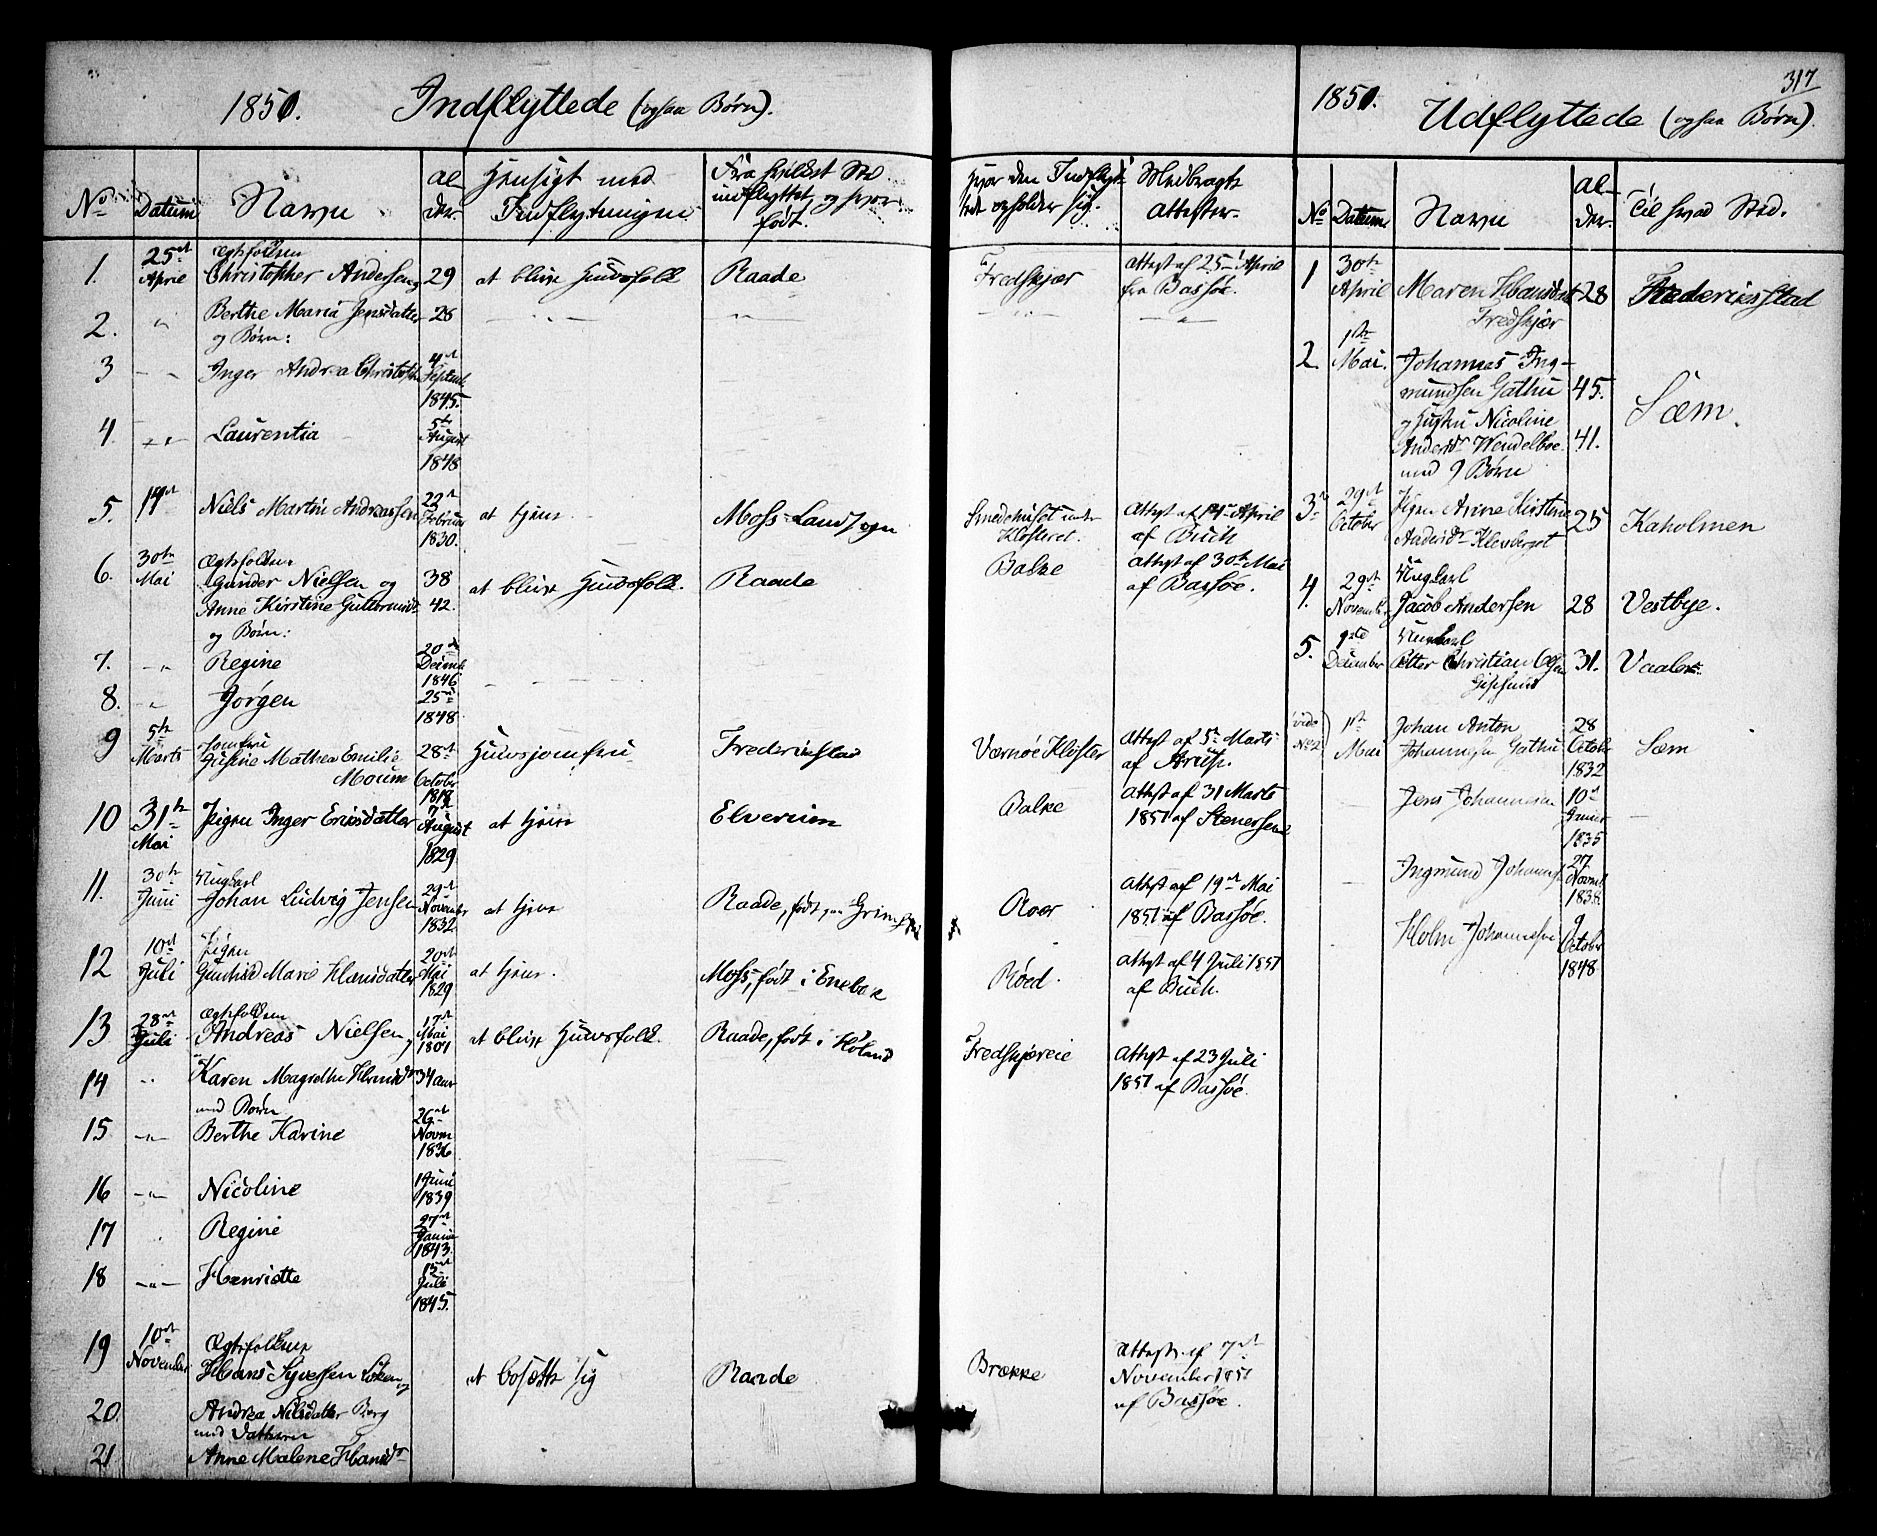 317
1851. Indflyttede (ogsaa Børn).
No Datum Navn Alder Hensigt med Indflytningen Fra hvilket Sted indflyttet og hvor født. Hvor den Indflyttede opholder sig. Medbragte Attester.
1. 25de April Ægtefolkene Christopher Andersen og 29 at blive Huusfolk Raade Fredskjær Attest af 25de April fra Bassøe.
2. " Berthe Maria Jensdatter 28 — " — " — " — " —
og Børn:
3 — " Inger Andrea Christoph 4de Septemb 1845.
4. — " — Laurentia 5te August 1848
5. 14de Niels Martin Andreassen 22de Februar 1830. at tjene Moss Landsogn Smedehuset under Klosteret. Attest af 14de April af Buch
6. 30te Mai Ægtefolkene Gunder Nielsen og 38 at blive Huusfolk. Raade Balke Attest af 30te Mai af Bassøe.
Anne Kirstine Guttormsdr 42.
og Børn:
7. — " Regine 20de Decemb 1846
8. — " Jørgen 25de 1848.
9 5te Marts Jomfru Gusine Mathea Emilie Morine 28de October 1818 Huusjomfru Frederikstad Værnøe Kloster Attest af 5te Marts af Arup.
10 31te Mai Pigen Inger Ericsdatter 7de August 1829 at tjene Elverum Balke Attest af 31 Marts 1851 af Stenersen
11. 30te Juni Ungkarl Johan Ludvig Jensen 29de November 1832 at tjene Raade, født paa Roer Attest af 19de Mai 1851 af Bassøe.
12 10de Juli Pigen Gunhild Marie Hansdatter 20de Mai 1829 at tjene. Moss, født i Enebak Røed. Attest af 4 Juli 1851 af Buch.
13 28de Juli Ægtefolkene Andreas Nielsen, 17de Mai 1801 at blive Huusfolk. Raade, født i Høland Fredskjøreie Attest af 23 Juli 1851 af Bassøe.
14 " Karen Magrethe 34 aar
med Børn
15 — " — Berthe Karine 26de Novm 1836
16 — " — Nicoline 1 Juni 1839
17 " Regine 27de Januar 1843.
18 — " — Henriette 12te Juli 1845.
19 10de November Ægtefolkene Hans Syversen og at bosætte sig Raade Brække Attest af 7de November 1851 af Bassøe.
20. Andrea Nilsdatter Berg
med Datteren
21 Anne Malene Hansdr
1851. Udflyttede (ogsaa Børn).
No Datum Navn Alder Til hvad Sted.
1 30te April Maren Hansdatt 28 Frederiksstad
Fredskjær
2 1ste Mai. Johannes Ingmundsen Gathu 45. Sæm.
og Hustru Nicoline Andersdr Wendelboe 41.
med 9 Børn
3. 29de October Pigen Anne Kirstine Andersdr 25 Kaholmen
4. 29de November Ungkarl Jacob Andersen 28 Vestbye.
5. 1ste December Ungkarl Petter Christian 31. Vaaler.
(vide No 2) 1ste Mai Johan Anton Johannesen Gathu 28 Octobr 1832 Sæm
— Jens Johannesen 10de Januar 1835 —
— Ingmund Johannes 27. Novemb 1838
Holm Johannesen 9 October 1848